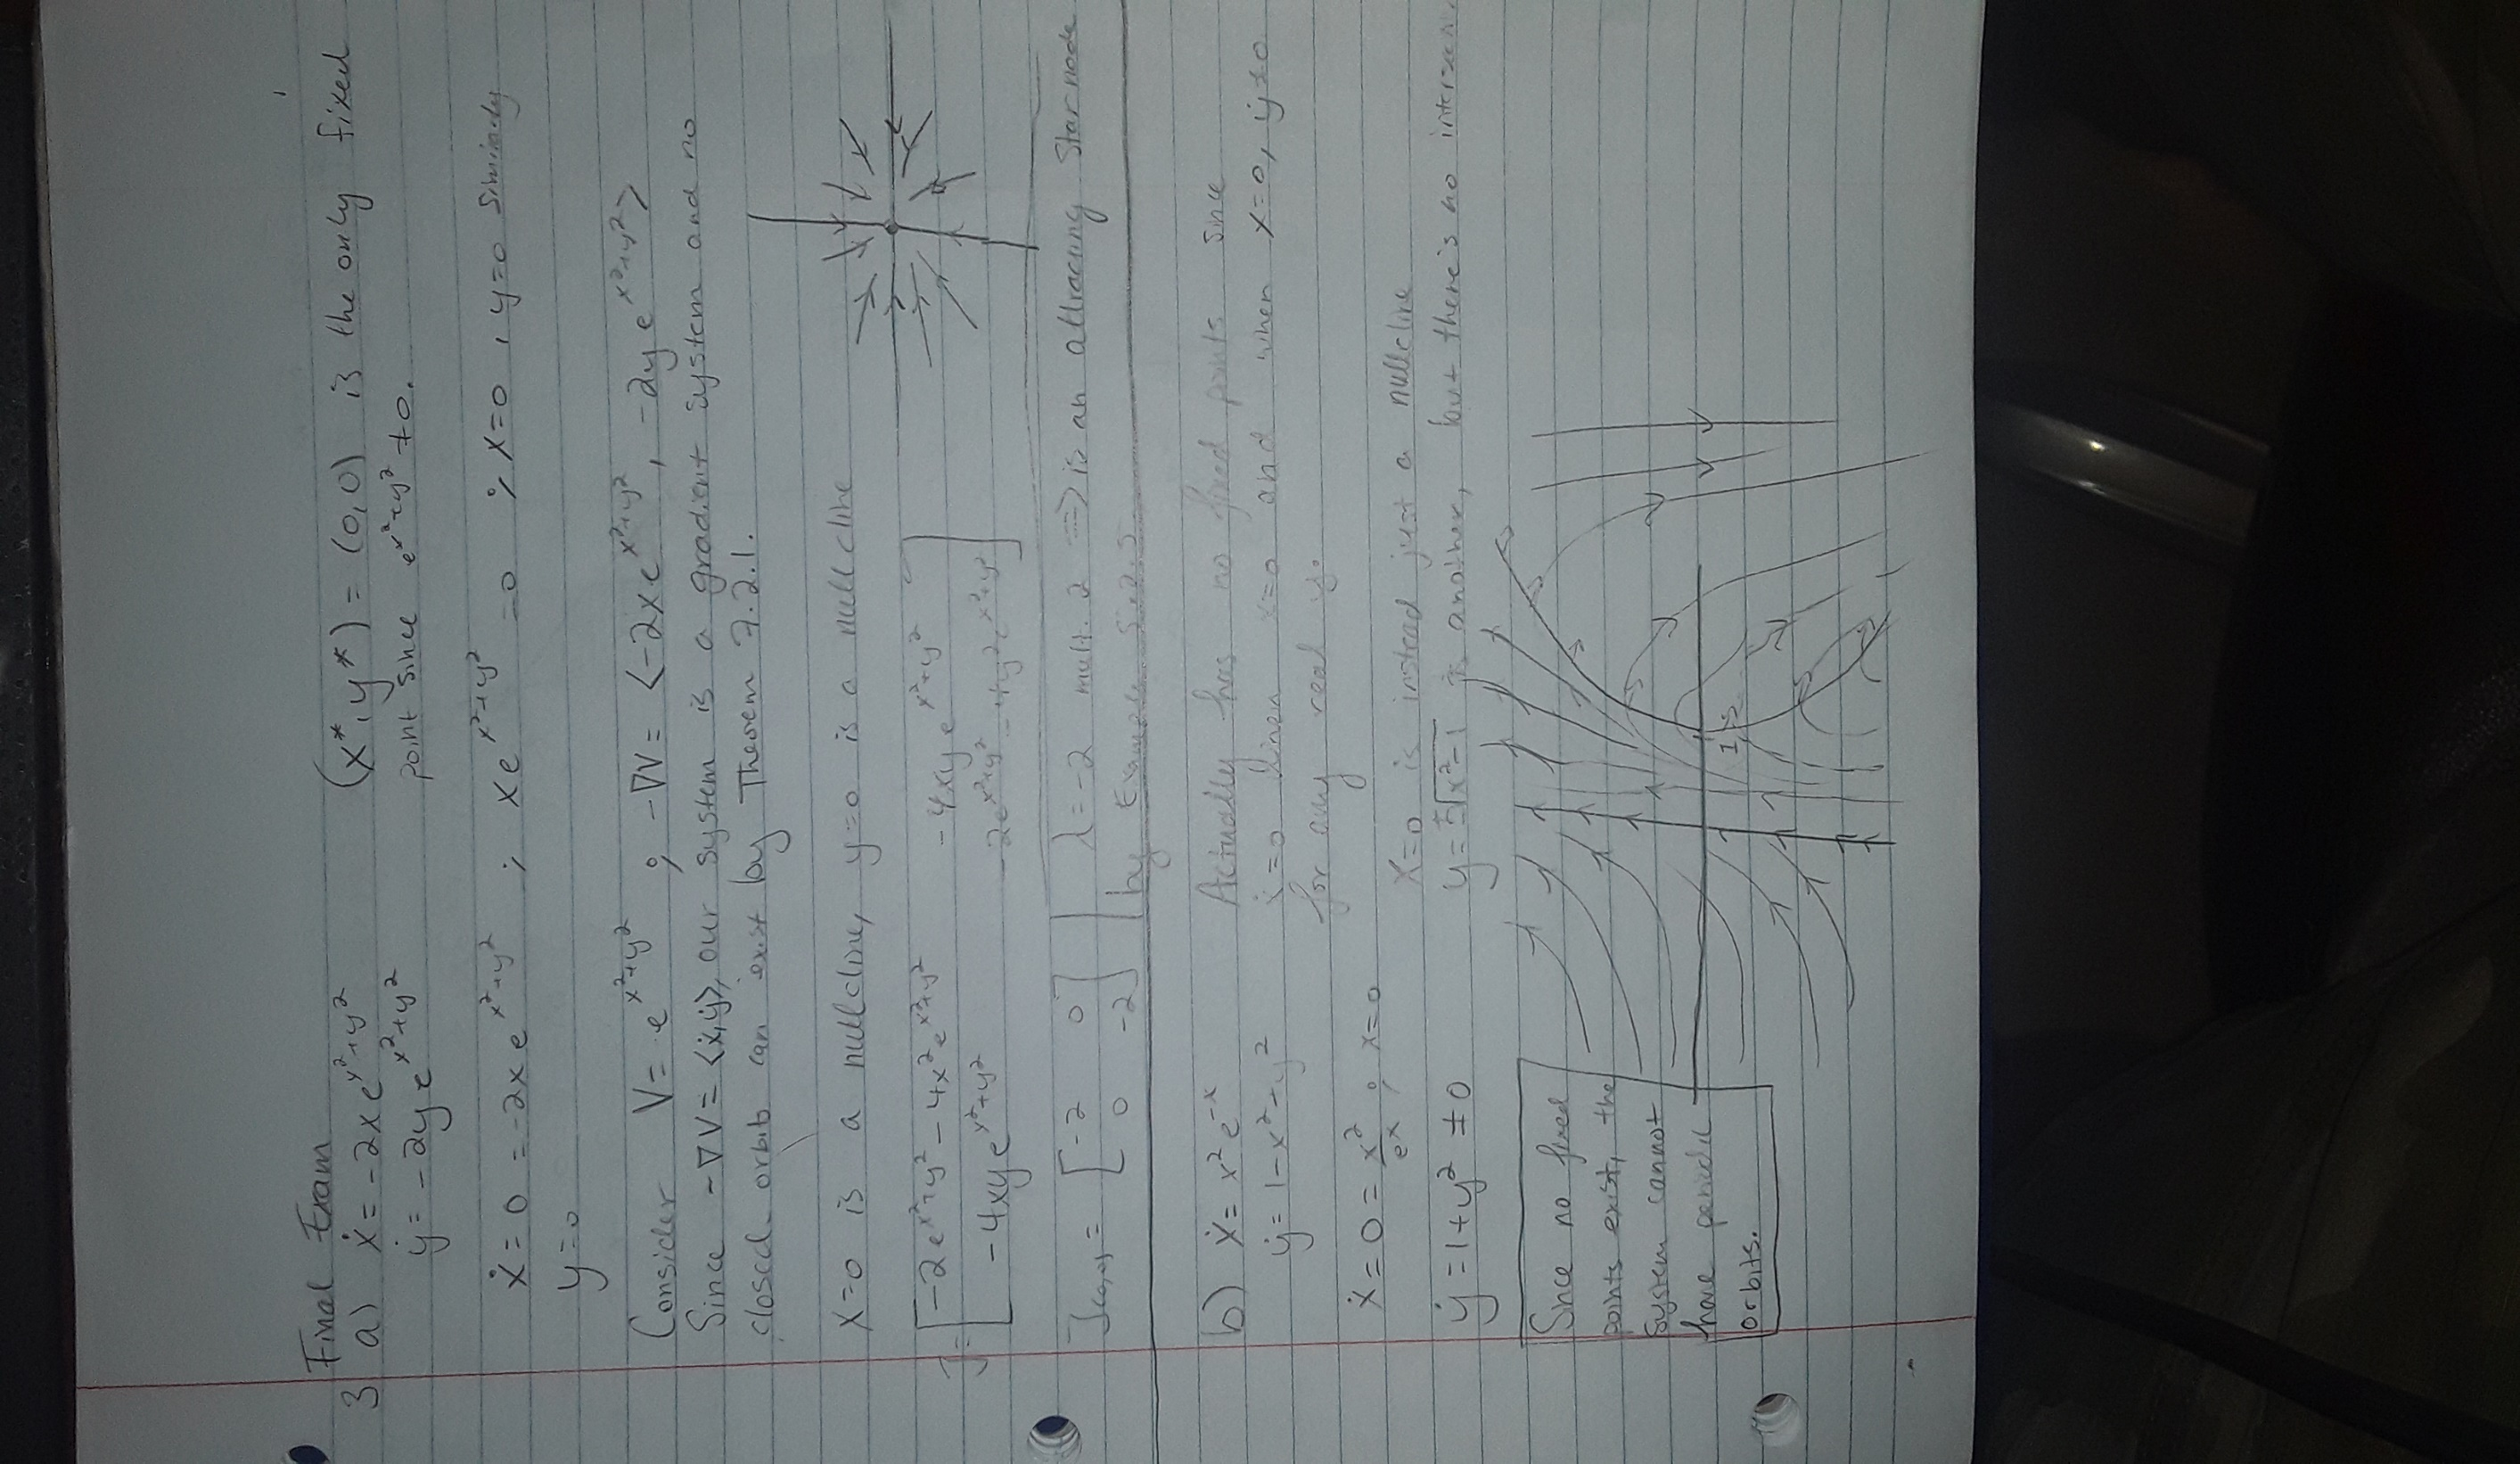 Final Exam
3 a) ẋ = -2xe^{x²+y²}
ẏ = -2ye^{x²+y²}
(x*,y*) = (0,0) is the only fixed
point since e^{x²+y²} ≠ 0.
ẋ = 0 = -2xe^{x²+y²} ; xe^{x²+y²} = 0 ; x=0, y=0 similarly
y=0
Consider V = e^{x²+y²} ; -∇V = <-2xe^{x²+y²}, -2ye^{x²+y²}>
Since -∇V = <ẋ,ẏ>, our system is a gradient system and no
closed orbits can exist by Theorem 7.2.1.
x=0 is a nullcline, y=0 is a nullcline
J = [-2e^{x²+y²} - 4x²e^{x²+y²} -4xye^{x²+y²}
-4xye^{x²+y²} -2e^{x²+y²} - 4y²e^{x²+y²}]
J(0,0) = [-2 0
0 -2] λ = -2 mult. 2 => is an attracting Star node
by Example 5.2.5
b) ẋ = x²e^{-x}
ẏ = 1-x²-y²
Actually has no fixed points since
ẋ=0 when x=0 and when x=0, ẏ≠0
for any real y.
ẋ = 0 = x²/e^x ; x=0
ẏ = 1+y² ≠ 0
x=0 is instead just a nullcline
y = ±√x²-1 is another, but there's no
1
Since no fixed
points exist, the
system cannot
have periodic
orbits.